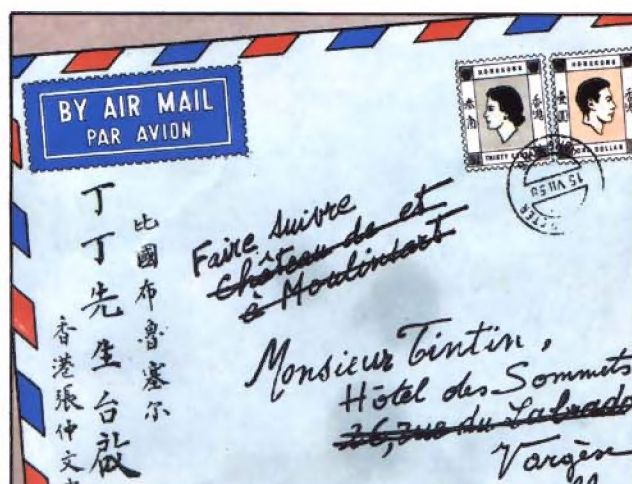 BY AIR MAIL
PAR AVION
HONGKONG
香港
THIRTY
HONGKONG
壹圓
DOLLAR
15 VII 58
比國布魯塞尔
丁丁先生台啟
香港張仲文
Faire suivre
Château de et
à Moulinsart
Monsieur Tintin,
Hôtel des Sommets
26, rue du Labrado
Vargèse